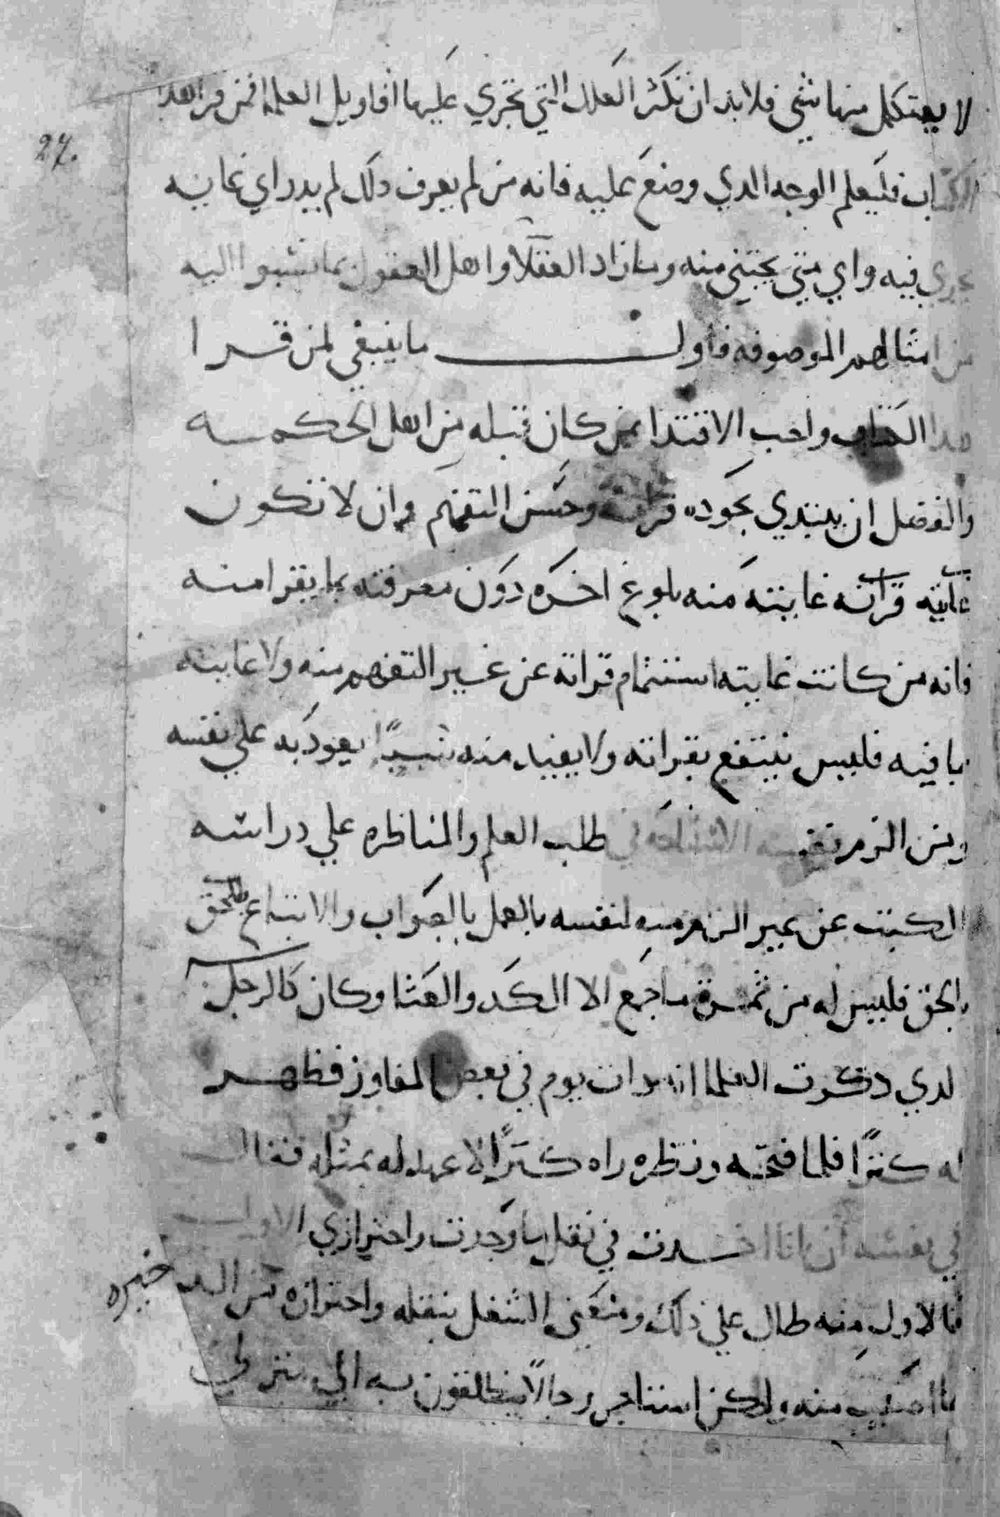 لا يعتكمل منها شي فلا بد ان تكثر العلل التي تجري عليها اقاويل العلما فمن قرا هدا
27.
الكتاب فليعلم الوجه الدي وضع عليه فانه من لم يعرف دلك لم يدر اي غايه
يجري فيه واي شي يجتني منه وما زاد العقلا واهل العقول بما نسبوا اليه
من امثالهم الموصوفه فاول ما ينبغي لمن قرا
هدا الكتاب واحب الاقتدا بمن كان قبله من اهل الحكمه
والفضل ان يبتدي بجوده قراته وحسن التفهم وان لا تكون
غايته قراته غايته منه بلوغ اخره دون معرفته بما يقرا منه
فانه من كانت غايته استتمام قراته عن غير التفهم منه ولا غايته
بما فيه فليس ينتفع بقراته ولا يفيد منه شيًا يعود به علي نفسه
ومن الزم نفسه في طلب العلم والمناظره علي دراسه
الكتب عن غير الزام منه لنفسه بالعمل بالصواب والاتباع للحق
بالحق فليس له من ثمرة ما جمع الا الكد والعنا وكان كالرجل
لدي دكرت العلما انه دات يوم في بعض المفاوز فظهر
له كنزًا فلما فتحه ونظره راه كنزًا لا عهد له بمثله فقال
في نفسه ان انا اخدت في نقل ما وجدت واحترازي الاول
فالاول منه طال علي دلك ومنعني الشغل بنقله واحترازه من اللده
خيره
ما اصبت منه ولكن استاجر رجالًا ينطلقون به الي منزلي